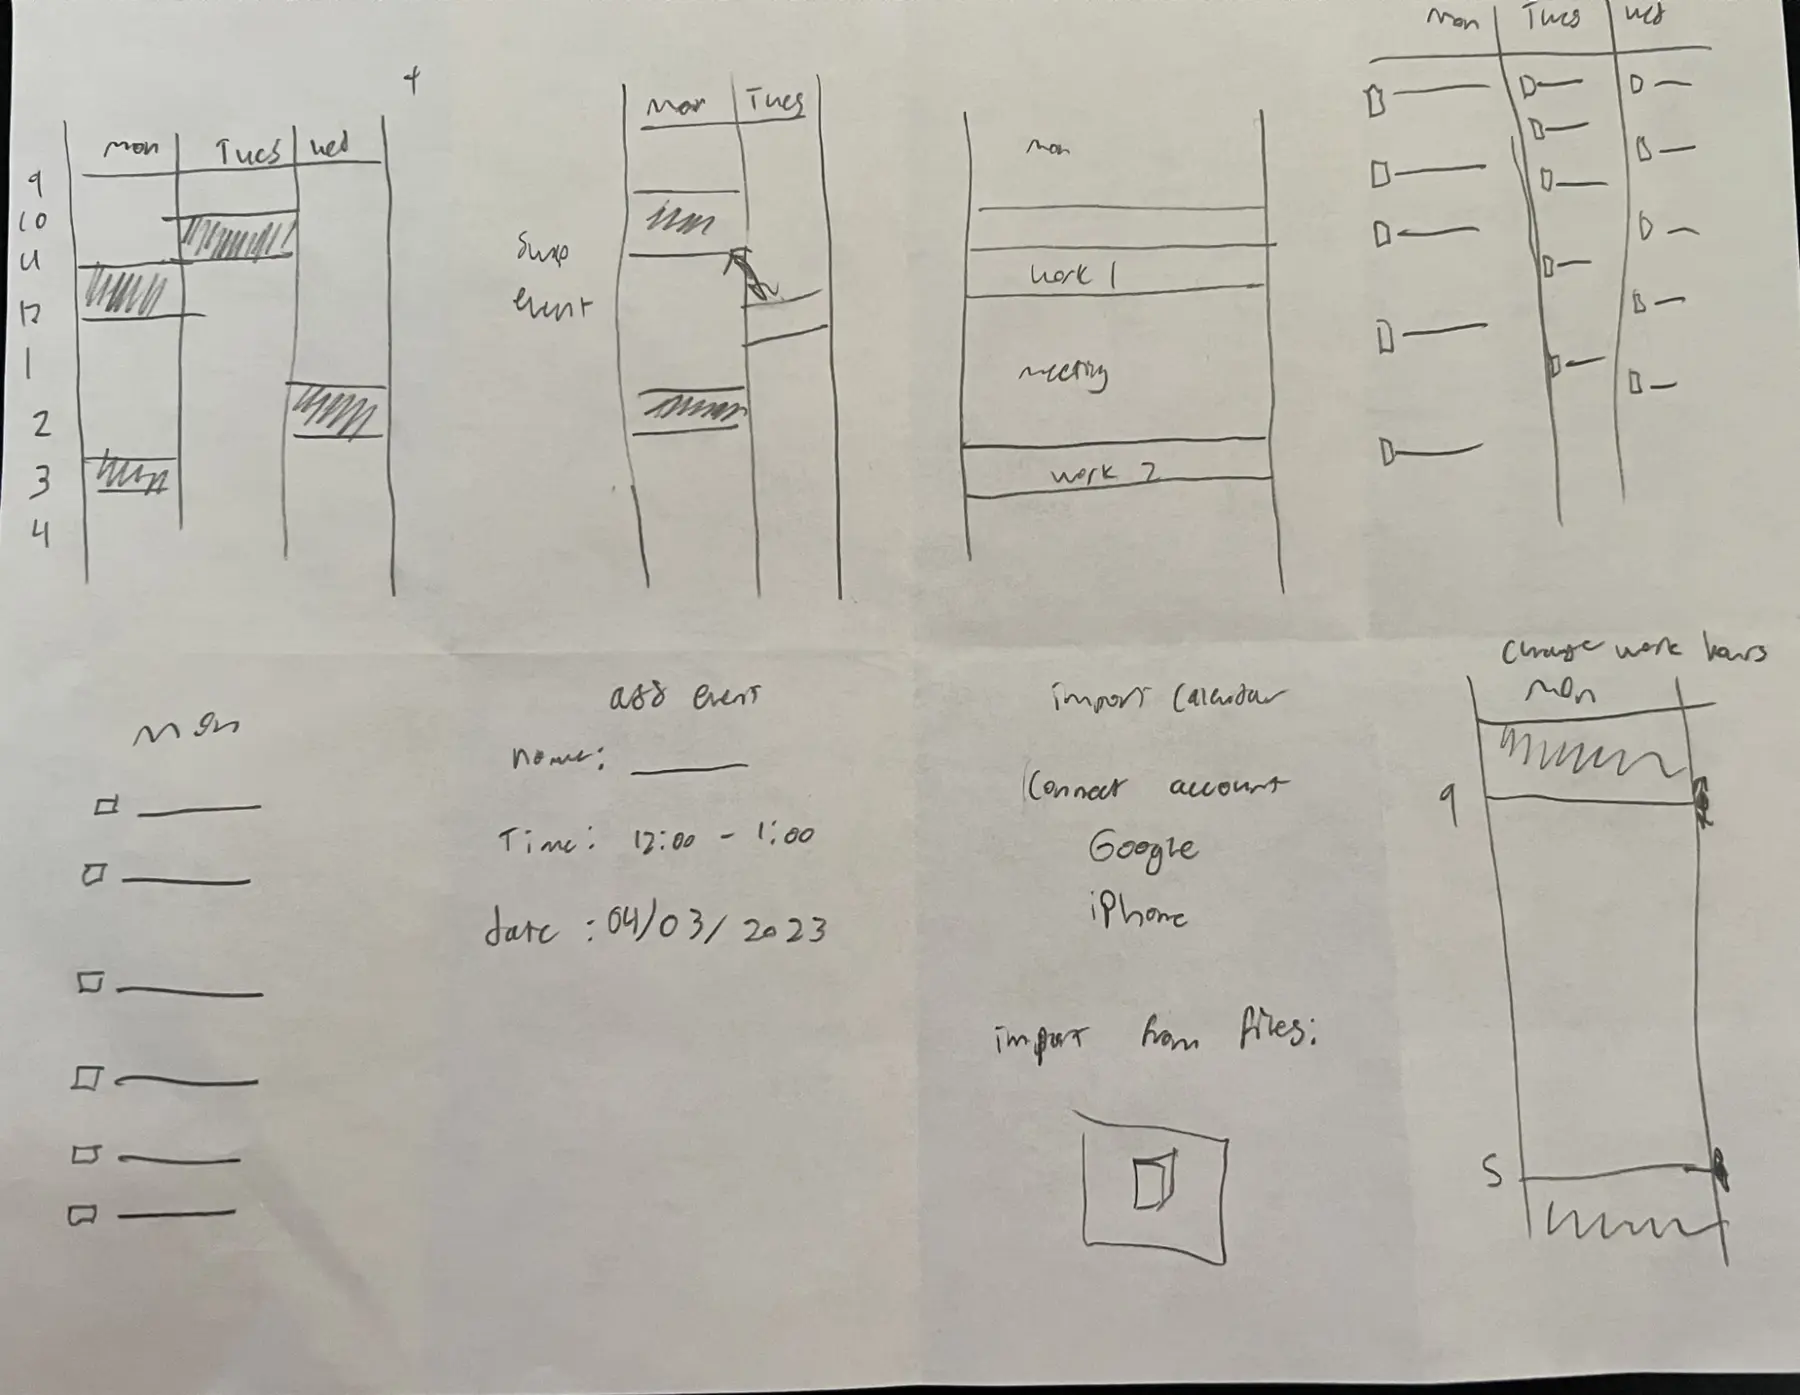 +
Mon Tues wed
9
10
11
12
1
2
3
4
Mon Tues
Swap
event
mon
work 1
meeting
work 2
Mon Tues wed
Mon
add event
name:
Time: 12:00 - 1:00
date : 04/03/2023
import Calendar
Connect account
Google
iPhone
import from files:
Change work hours
Mon
9
5